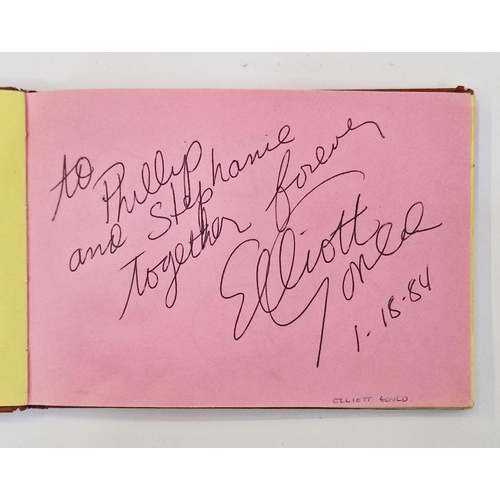 to Phillip
and Stephanie
together forever
Elliott
Gould
1-18-84
ELLIOTT GOULD